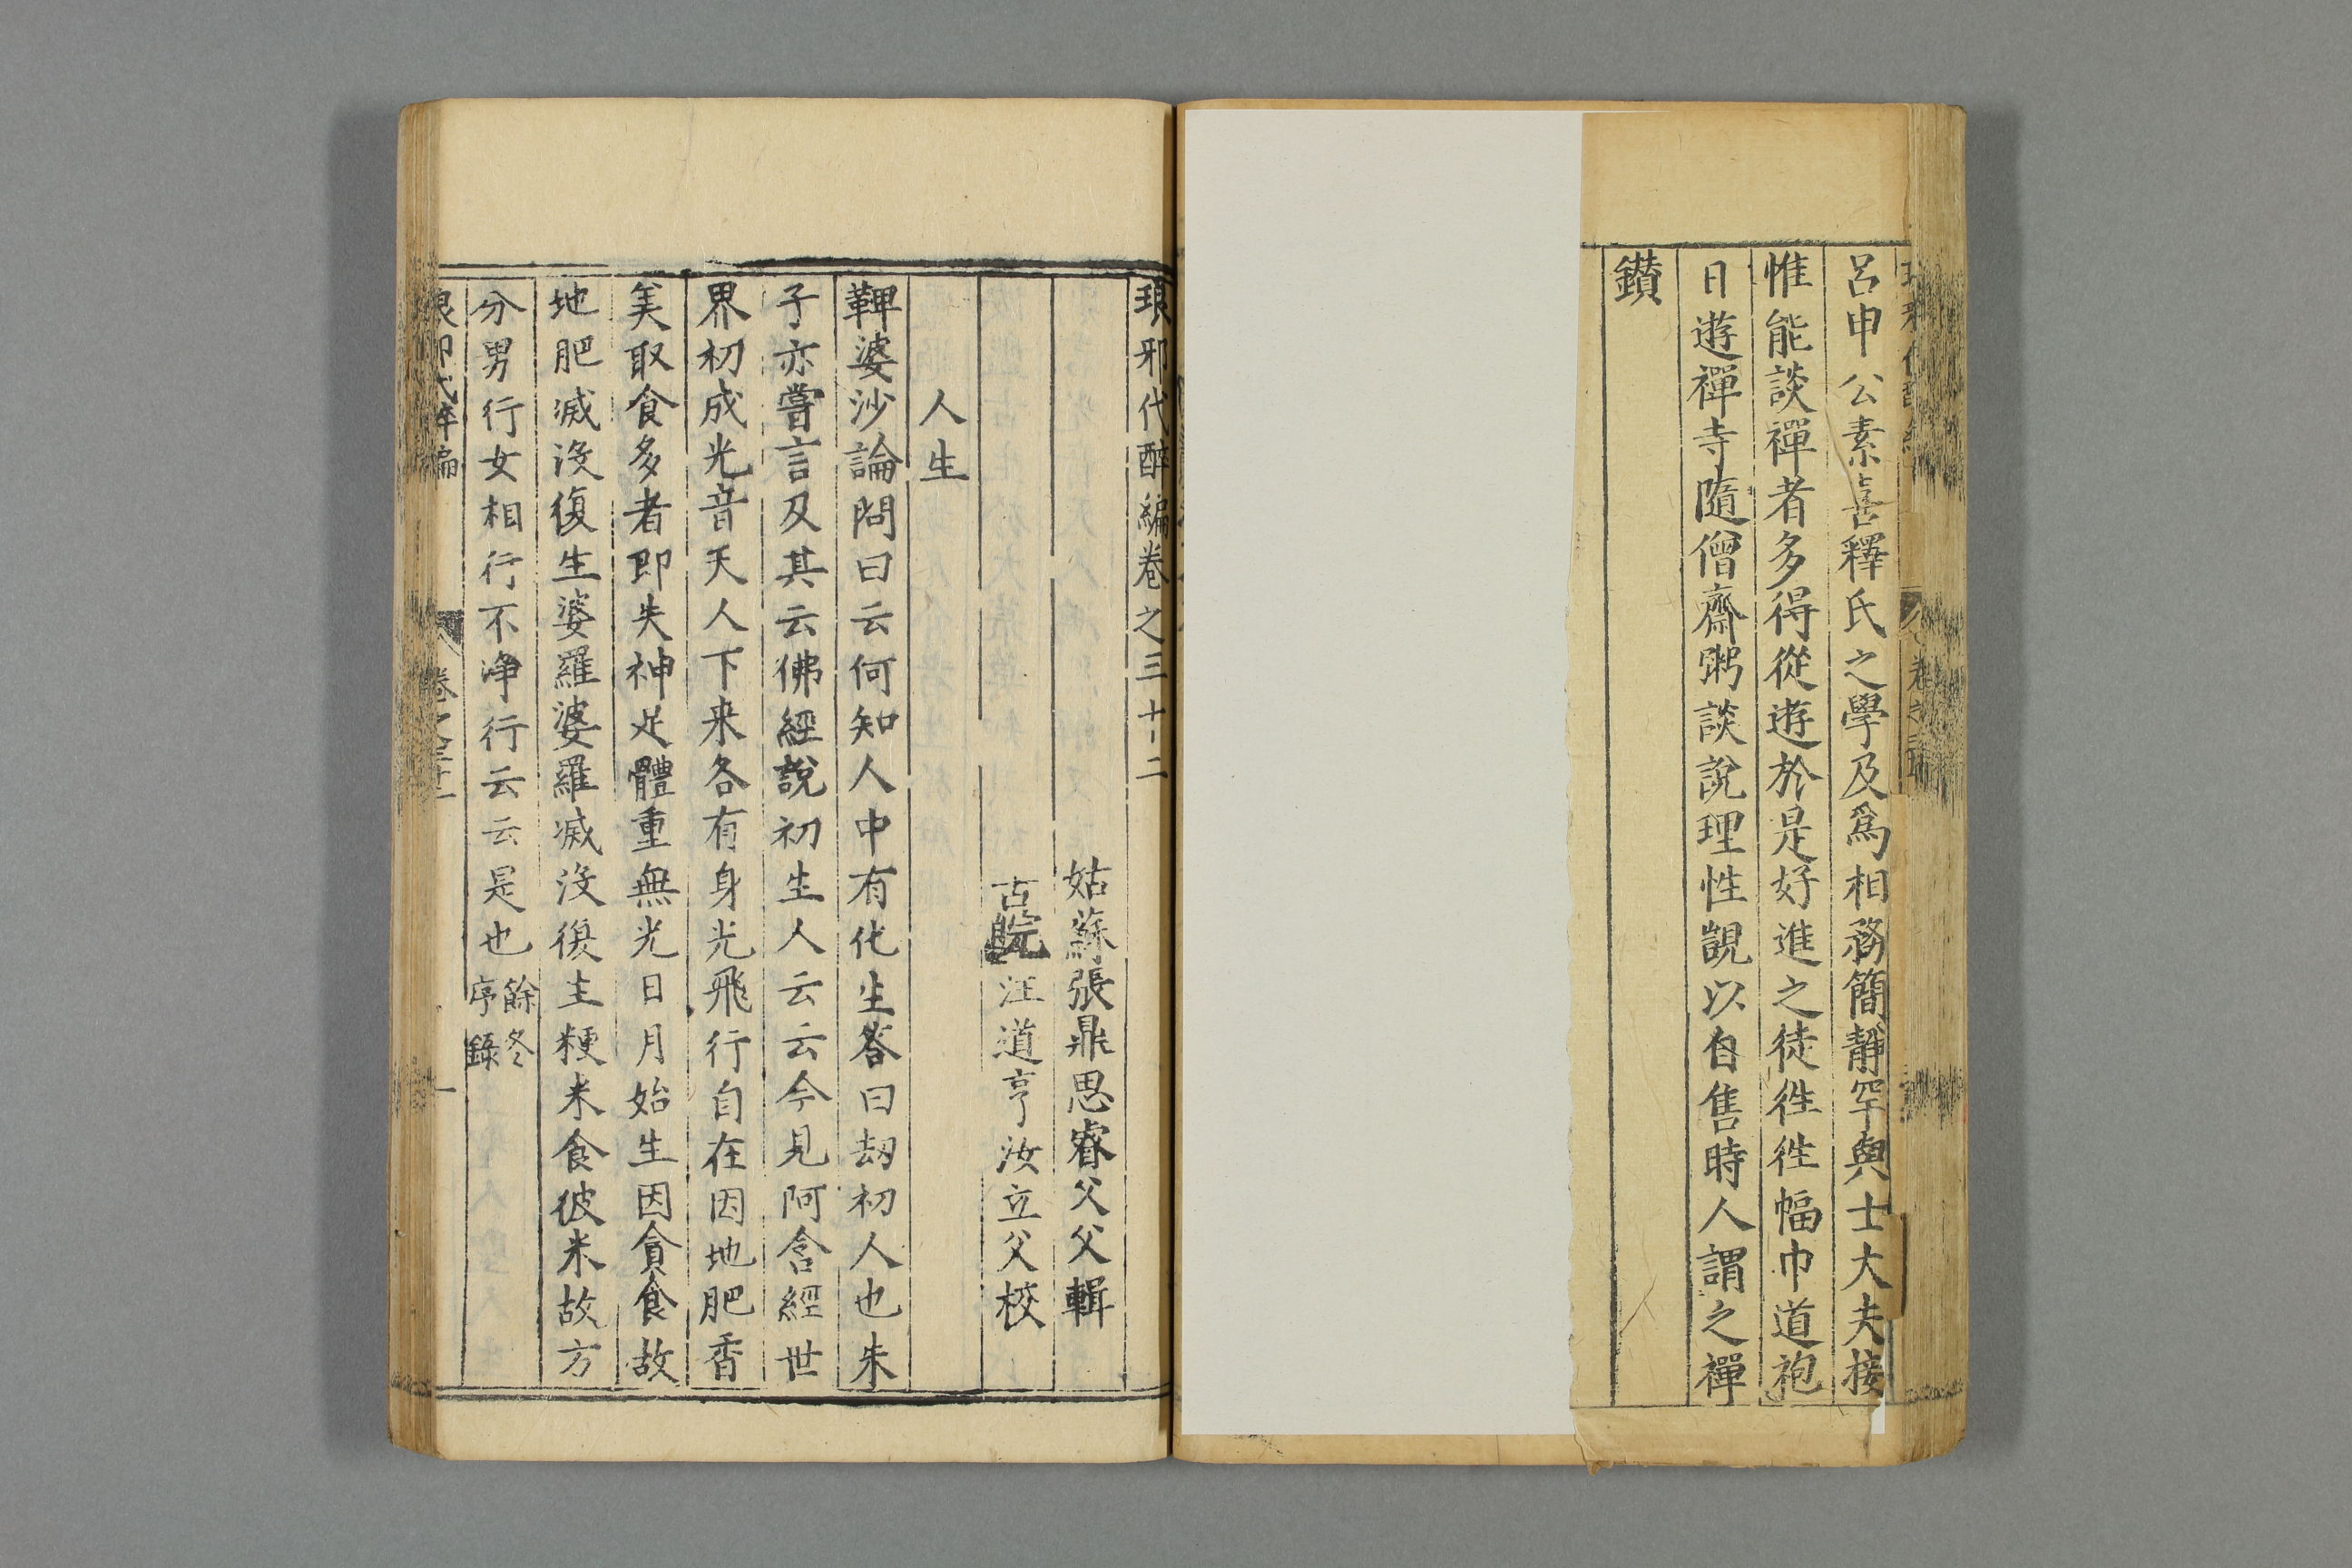 呂申公素喜釋氏之學及爲相務簡靜罕與士大夫接
惟能談禪者多得從遊於是好進之徒徃徃幅巾道袍
日遊禪寺隨僧齋粥談說理性覬以自售時人謂之禪
鑚
琅邪代醉編卷之三十二
姑蘇張鼎思睿父父輯
古皖汪道亨汝立父校
人生
鞞婆沙論問曰云何知人中有化生答曰劫初人也朱
子亦嘗言及其云佛經說初生人云云今見阿含經世
界初成光音天人下来各有身光飛行自在因地肥香
美取食多者即失神足體重無光日月始生因貪食故
地肥滅沒復生婆羅婆羅滅沒復主粳米食彼米故方
分男行女相行不净行云云是也餘冬
序錄